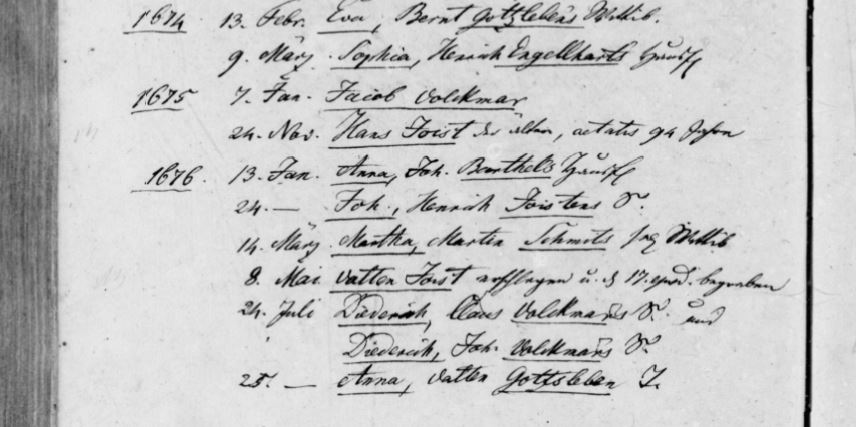 1674 13. Febr. Eva, Bernt Gotzlebens Wittib.
9. März. Sophia, Henrich Engellharts Hausfr
1675 7. Jan. Jacob Volckmar
24. Nov. Hans Joist der älter, aetatis 94 Jahr
1676. 13. Jan. Anna, Joh. Barthels Hausfr
24. — Joh., Henrich Joistens S.
14. März Martha, Martin Schmits sel. Wittib
8. Mai Valten Joist erschlagen u. d 17. ejusd. begraben
24. Juli Diederich, Claus Volckmars S. und
Diederich, Joh. Volckmars S.
25. — Anna, Valten Gottsleben T.